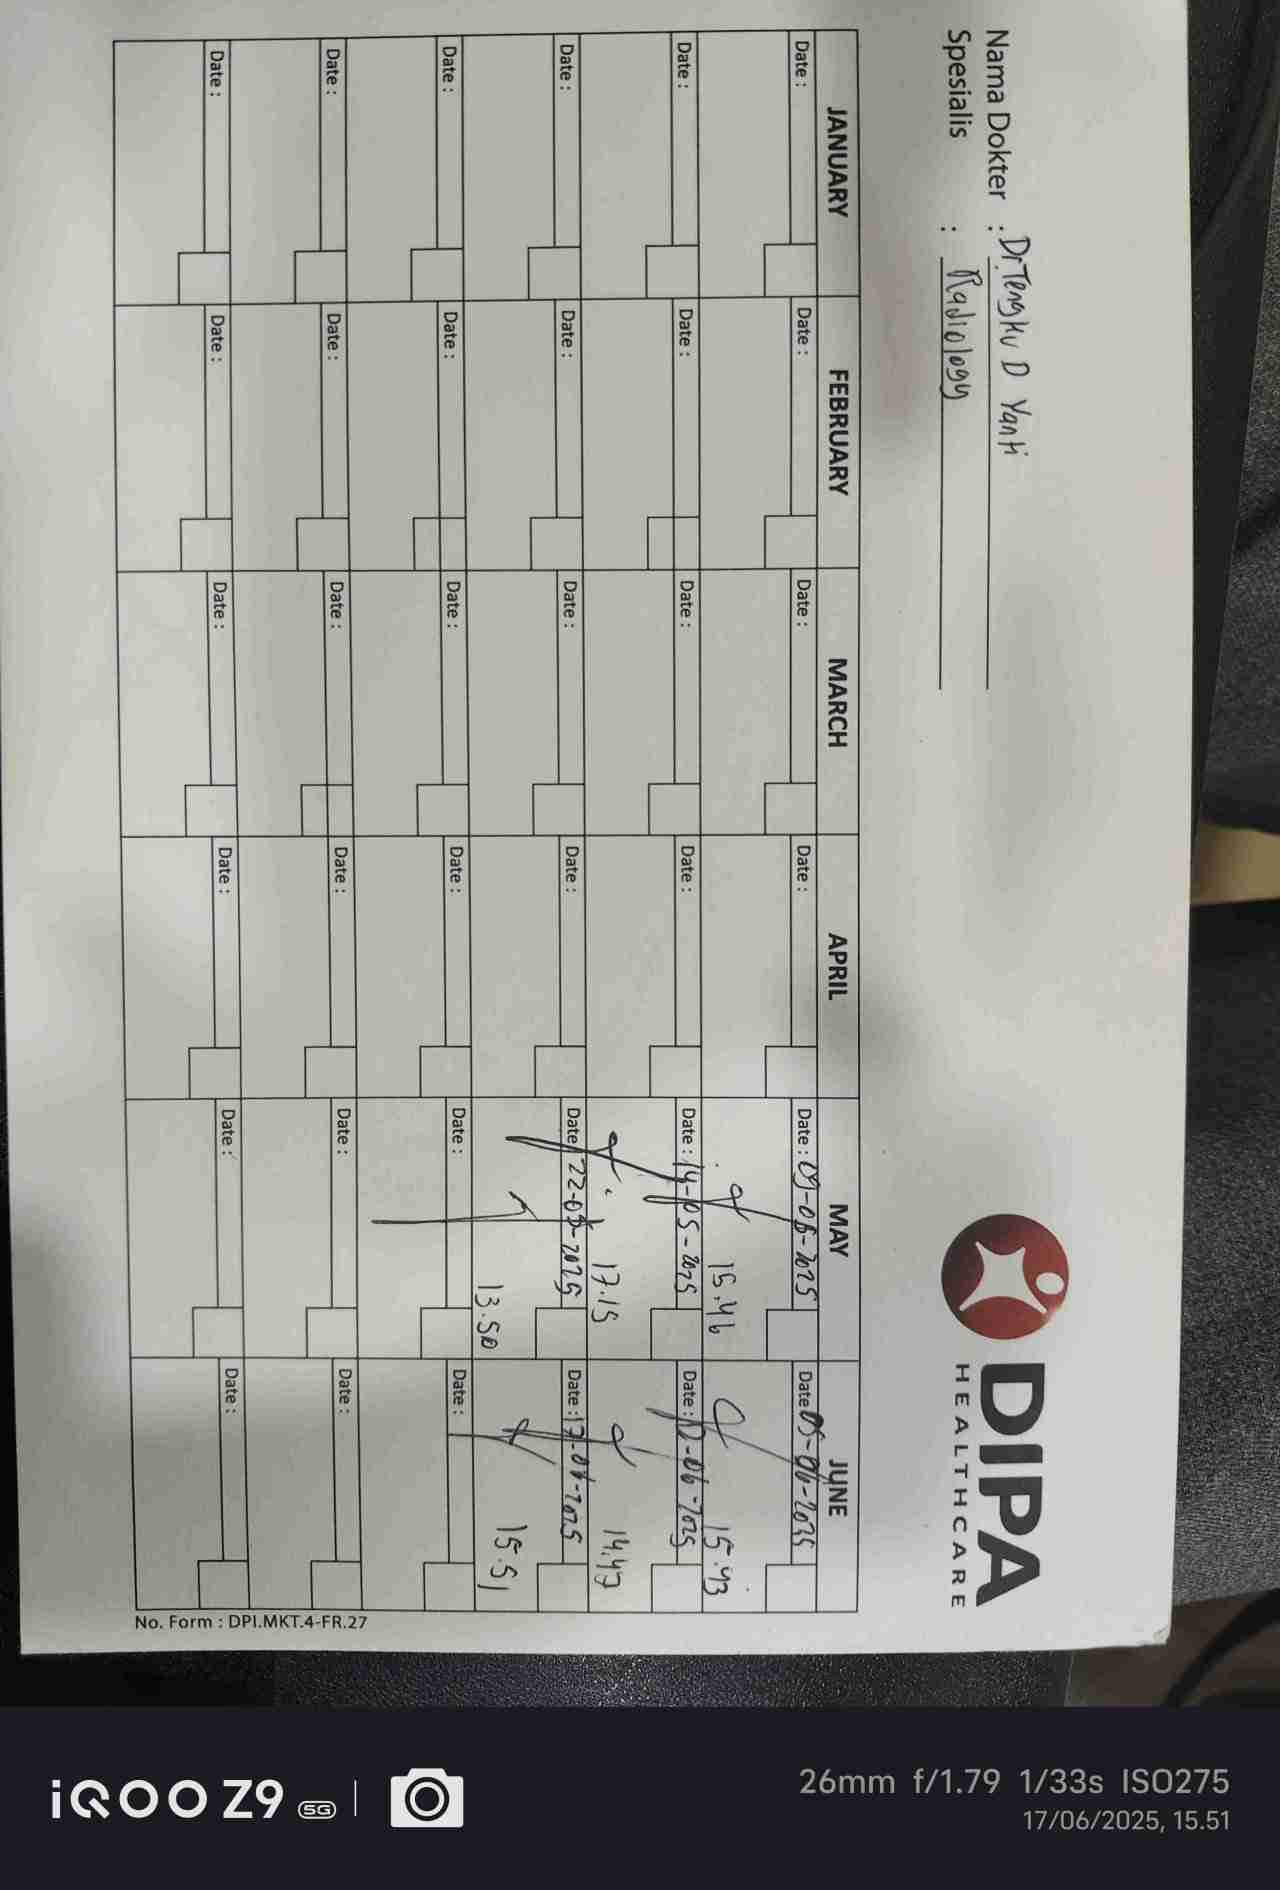 DIPA
HEALTHCARE
Nama Dokter : Dr. Tengku D Yanti
Spesialis : Radiology
JANUARY FEBRUARY MARCH APRIL MAY JUNE
Date : Date : Date : Date : Date : 09-05-2025 Date 05-06-2025
15.46 15.43
Date : Date : Date : Date : Date : 14-05-2025 Date : 12-06-2025
17.15 14.47
Date : Date : Date : Date : Date 22-05-2025 Date : 17-06-2025
13.50 15.51
Date : Date : Date : Date : Date : Date :
Date : Date : Date : Date : Date : Date :
Date : Date : Date : Date : Date : Date :
No. Form : DPI.MKT.4-FR.27
iQOO Z9 5G
26mm f/1.79 1/33s ISO275
17/06/2025, 15.51